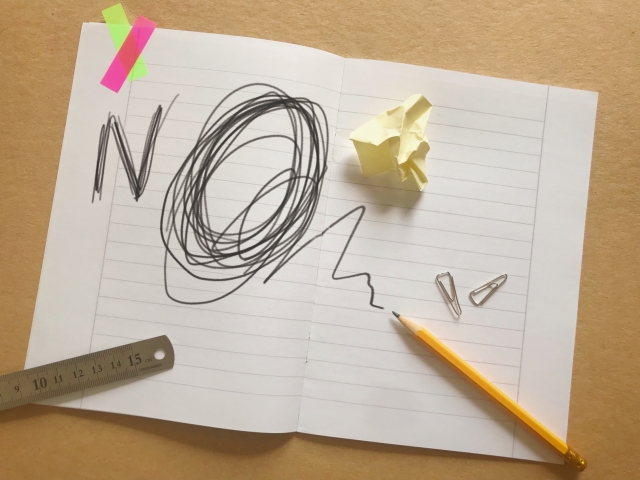 NO
9 10 11 12 13 14 15